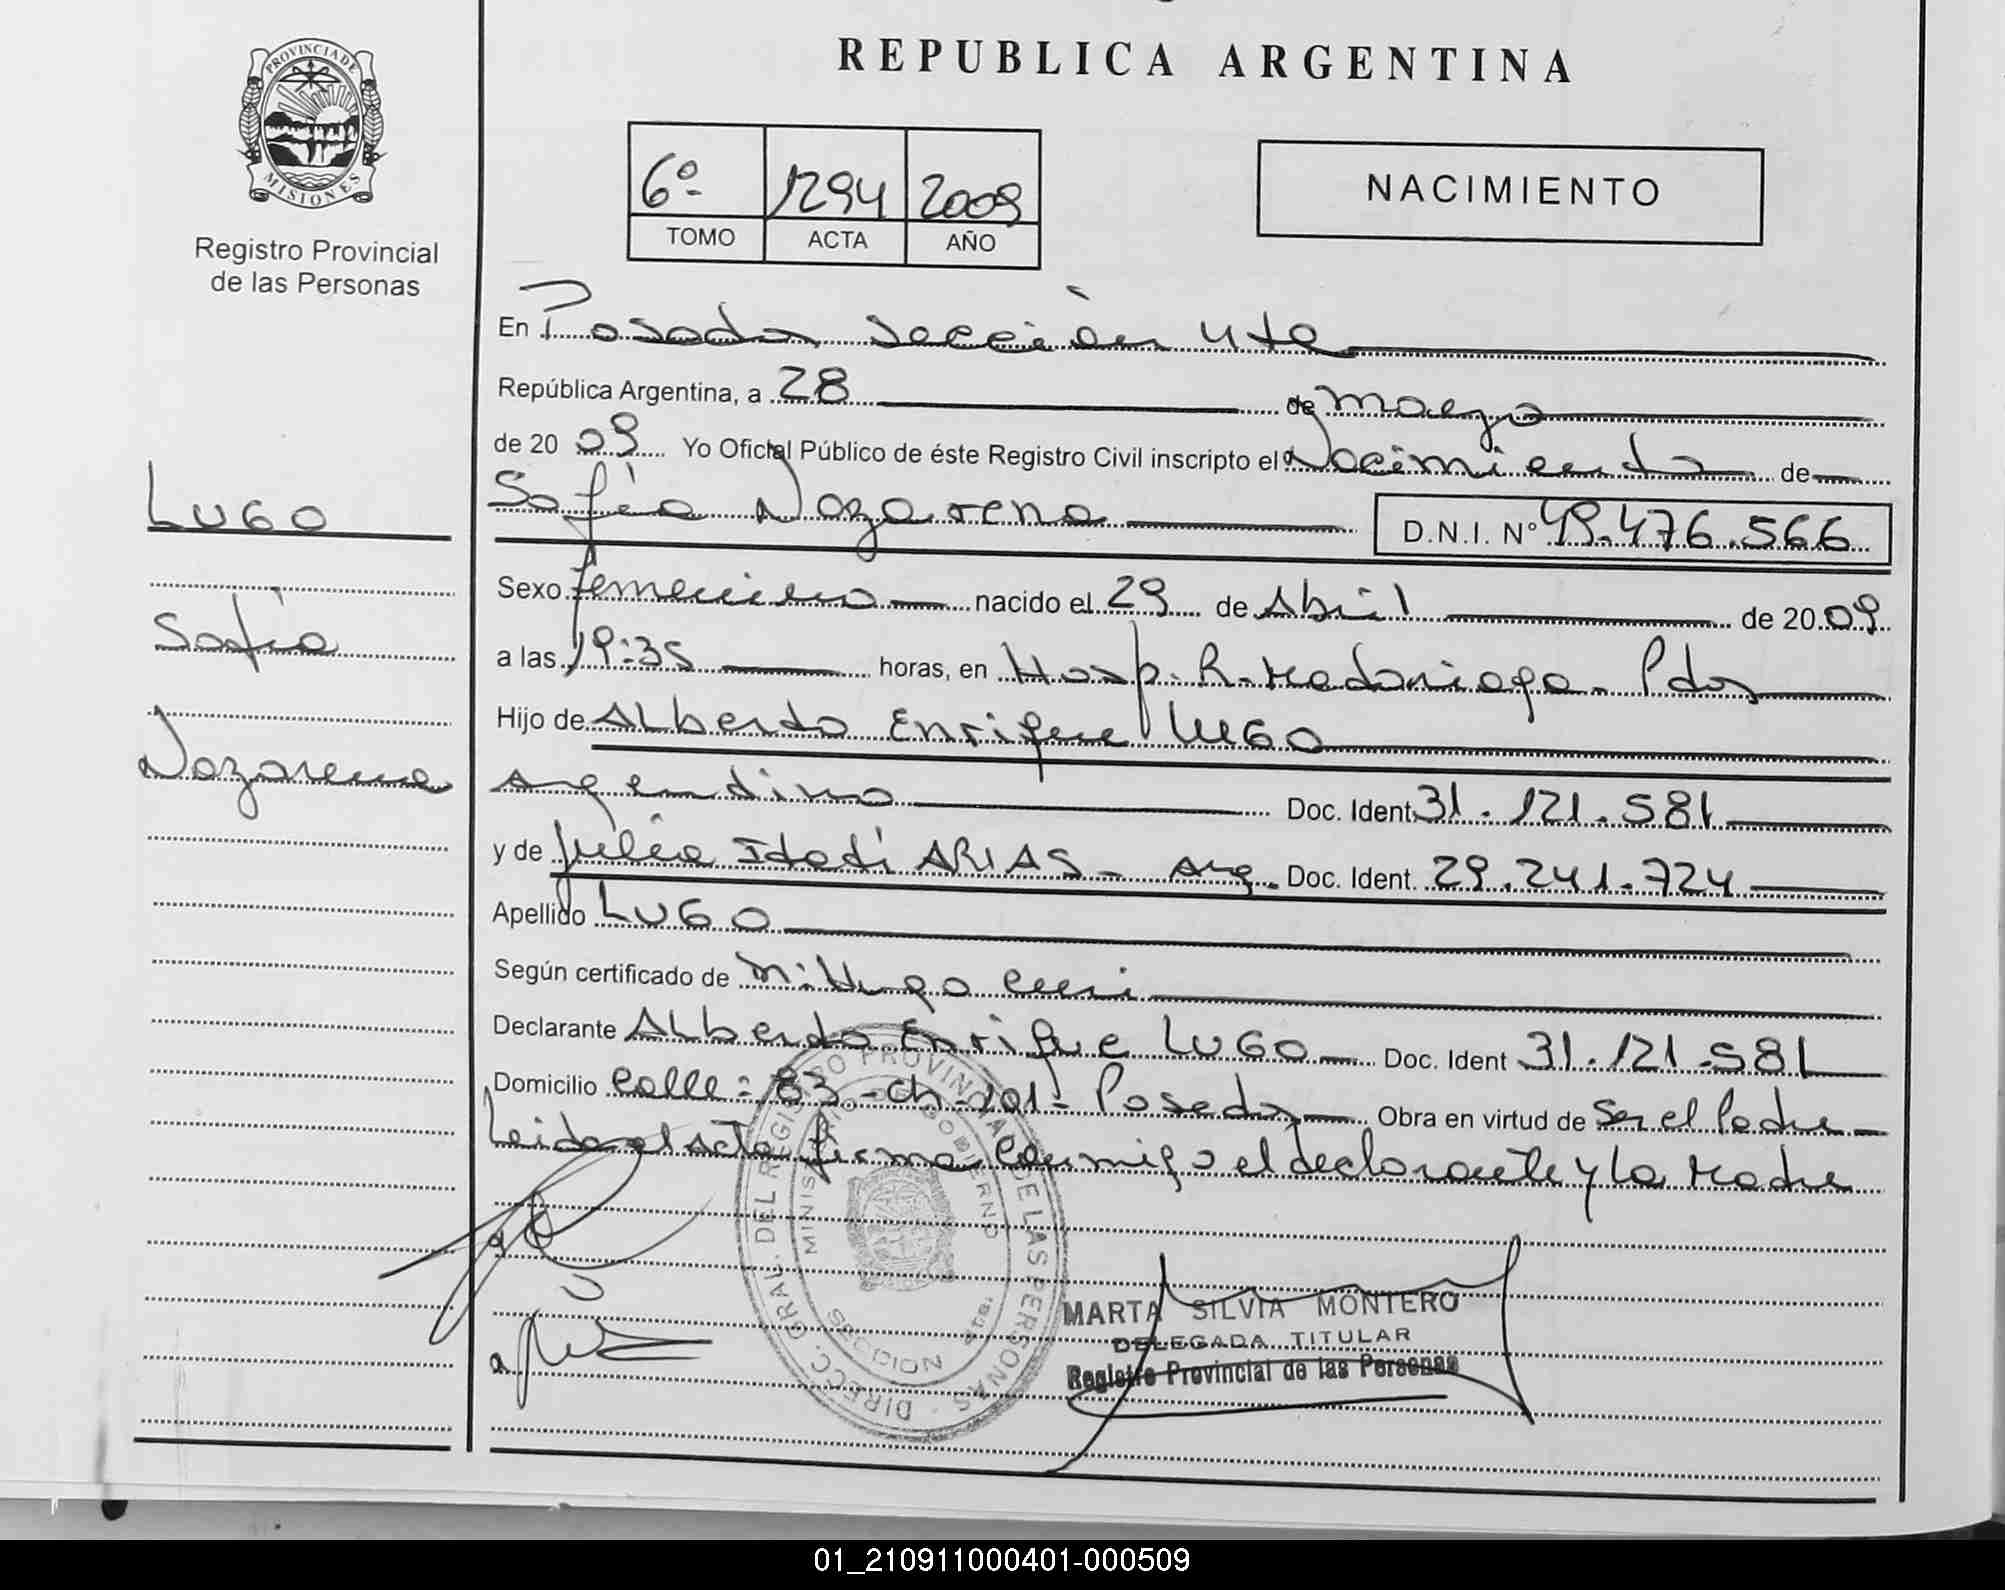 REPUBLICA ARGENTINA
PROVINCIA DE
MISIONES
Registro Provincial
de las Personas
6º 1294 2009
TOMO ACTA AÑO
NACIMIENTO
En Posadas Sección 4ta
República Argentina, a 28 de mayo
de 2009 Yo Oficial Público de éste Registro Civil inscripto el Nacimiento de
Sofía Nazarena D.N.I. Nº 49.476.566
LUGO
Sofía
Nazarena
Sexo femenino nacido el 29 de Abril de 2009
a las 19:35 horas, en Hosp. R. Madariaga - Pdas
Hijo de Alberto Enrique LUGO
Argentino Doc. Ident. 31.121.581
y de Julia Itatí ARIAS - Arg. Doc. Ident. 29.241.724
Apellido LUGO
Según certificado de Hugo
Declarante Alberto Enrique LUGO Doc. Ident 31.121.581
Domicilio calle: 83 - ch - 101 - Posadas Obra en virtud de Ser el Padre -
Leida el acta firma conmigo el declarante y la Madre
DIRECC. GRAL. DEL REGISTRO PROVINCIAL DE LAS PERSONAS
MINISTERIO DE GOBIERNO
SECCION 4ta.
MARTA SILVIA MONTERO
DELEGADA TITULAR
Registro Provincial de las Personas
01_210911000401-000509